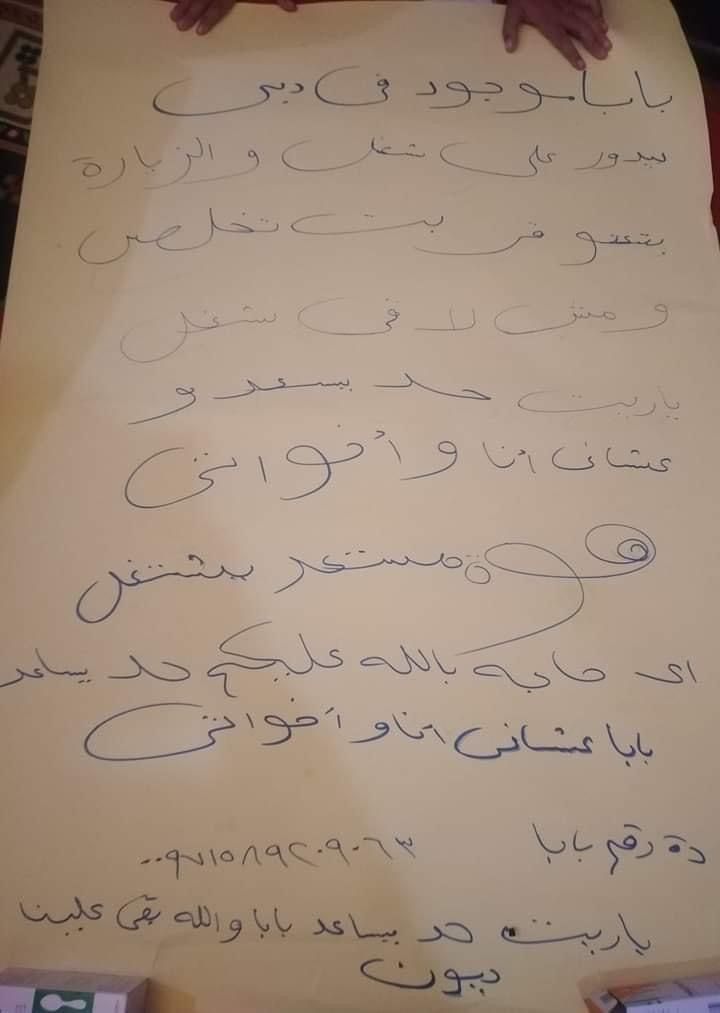 بابا موجود فى دبى
بيدور على شغل و الزيارة
بتعتو قربت تخلص
ومش لاقى شغل
ياريت حد يسعدو
عشانى أنا و أخواتى
هوة مستعد يشتغل
اى حاجه بالله عليكم حد يساعد
بابا عشانى أنا و أخواتى
دة رقم بابا ٠٠٩٧١٥٨٩٢٠٩٠٦٣
ياريت حد يساعد بابا والله بقى علينا
ديون